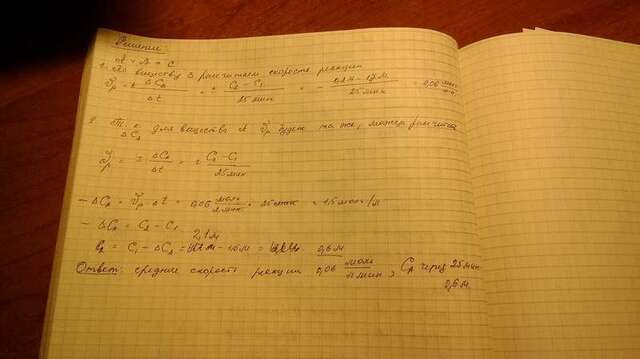 Решение
A + B = C
1. По веществу B рассчитаем скорость реакции
V̄р = ± ΔC_B / Δt = ± (C₂ − C₁) / 25 мин = − / 25 мин = 0,06
2. Т. к. для вещества A V̄р будет та же, можем
ΔC_A
V̄р = ± ΔC_A / Δt = ± (C₂ − C₁) / 25 мин
− ΔC_A = V̄р · Δt = 0,06 моль / л мин · 25 мин = 1,5 моль/л
− ΔC_A = C₂ − C₁
2,1 м
C₂ = C₁ − ΔC_A = − 1,5 м = 0,6 м
Ответ: средняя скорость реакции 0,06 моль / л мин, C_A через 25 мин
0,6 м.